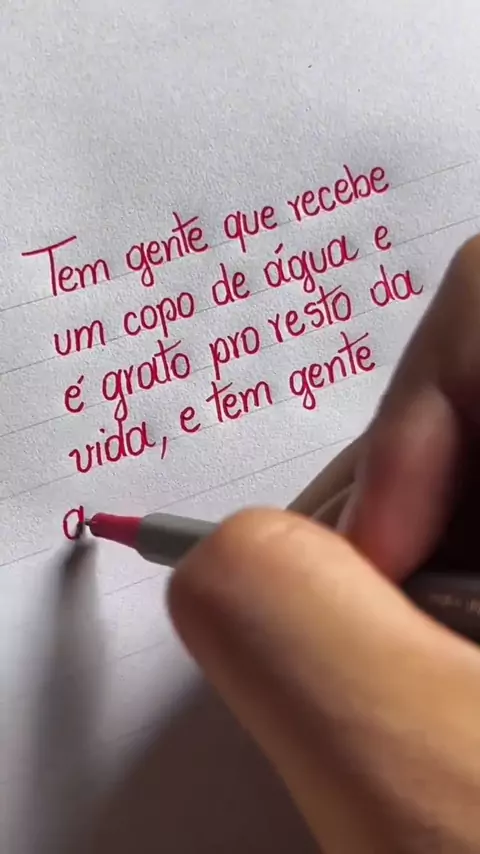 Tem gente que recebe
um copo de água e
é grato pro resto da
vida, e tem gente